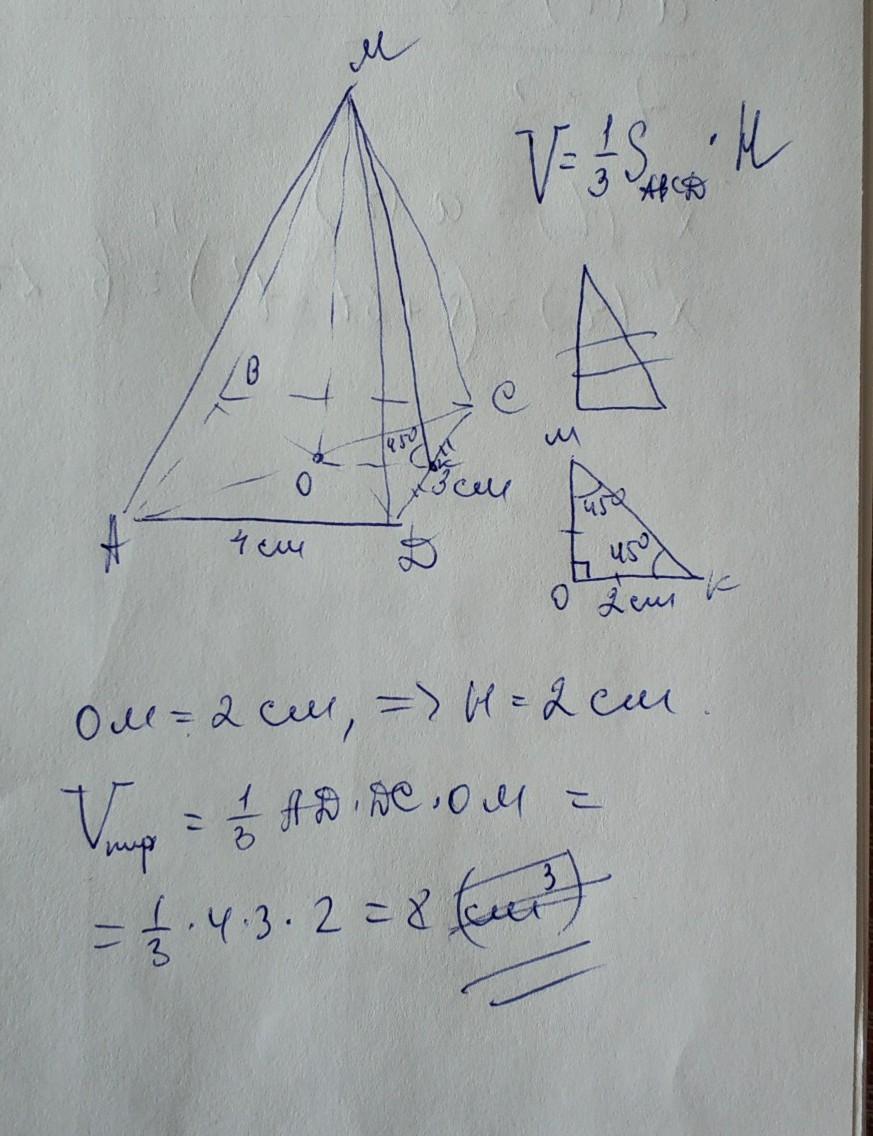 M
V = 1/3 S_ABCD · H
B
C
45° K
O
3 см
A 4 см D
M
45°
45°
O 2 см K
OM = 2 см, => H = 2 см.
V_пир = 1/3 AD · DC · OM =
= 1/3 · 4 · 3 · 2 = 8 (см³)